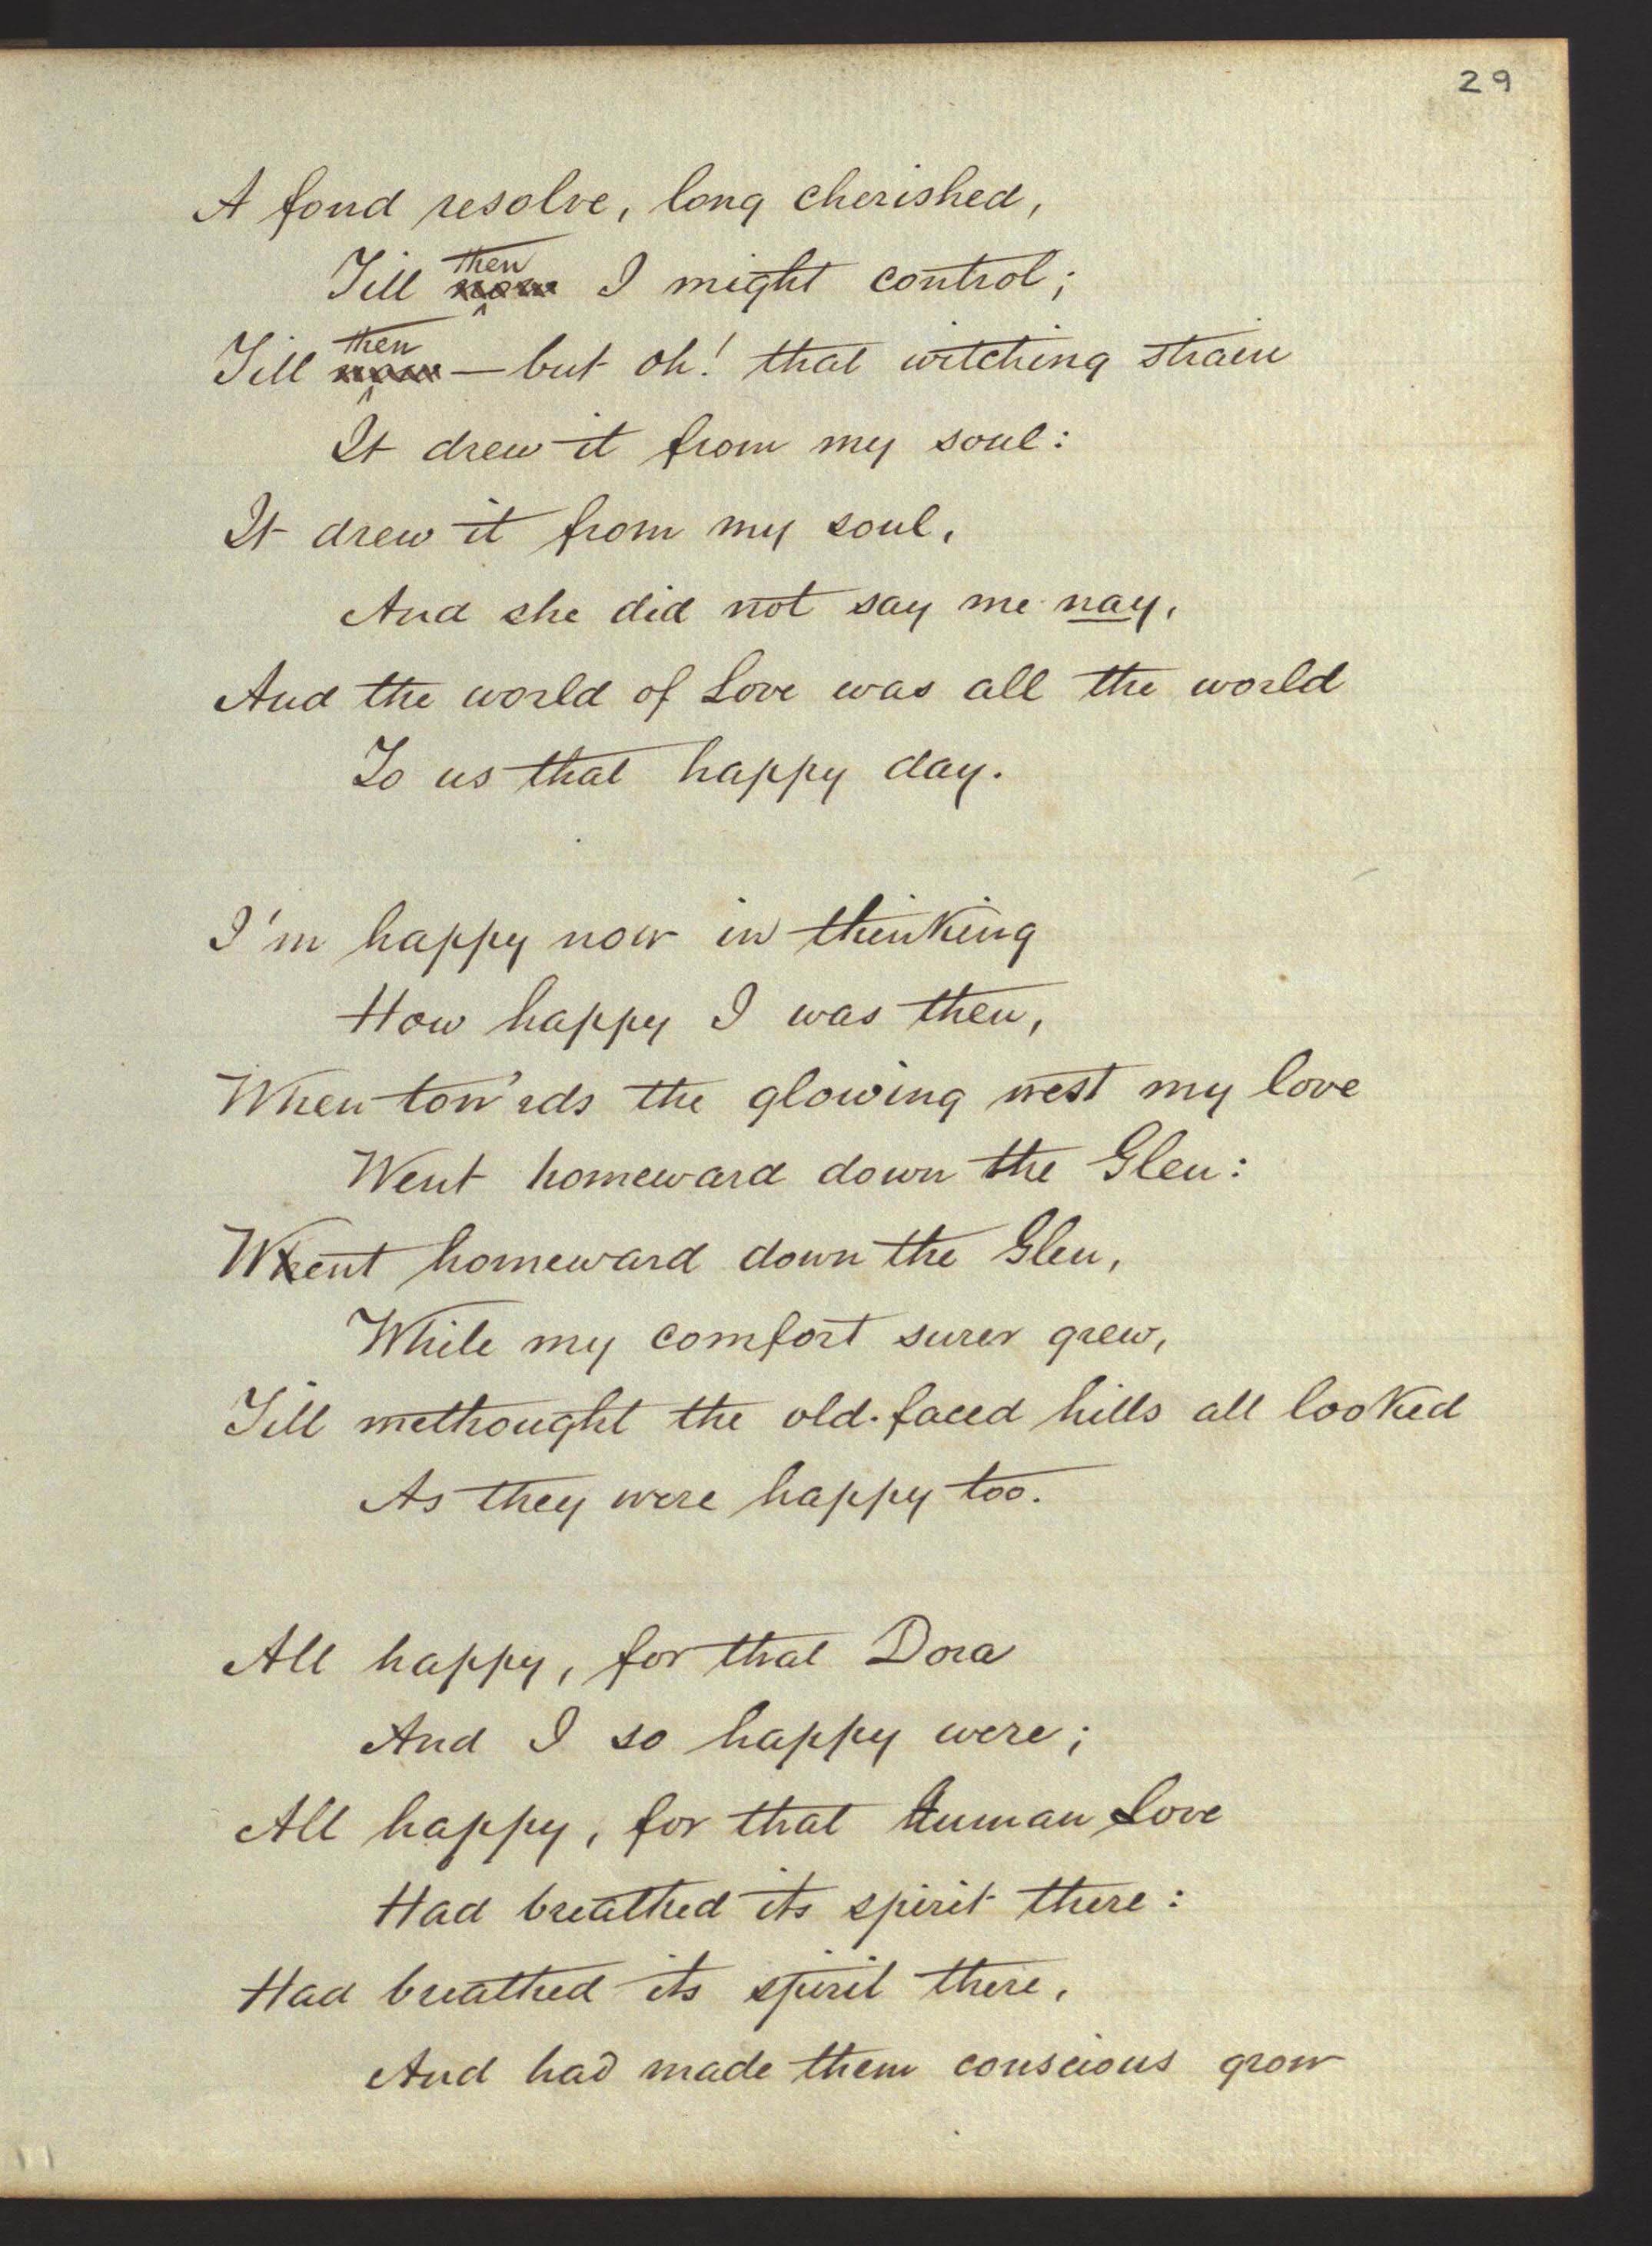 29
A fond resolve, long cherished,
Till now then I might control;
Till now then — but oh! that witching strain
It drew it from my soul:
It drew it from my soul,
And she did not say me nay,
And the world of Love was all the world
To us that happy day.
I'm happy now in thinking
How happy I was then,
When tow'rds the glowing west my love
Went homeward down the Glen:
Went homeward down the Glen,
While my comfort surer grew,
Till methought the old-faced hills all looked
As they were happy too.
All happy, for that Dora
And I so happy were;
All happy, for that human Love
Had breathed its spirit there:
Had breathed its spirit there,
And had made them conscious grow